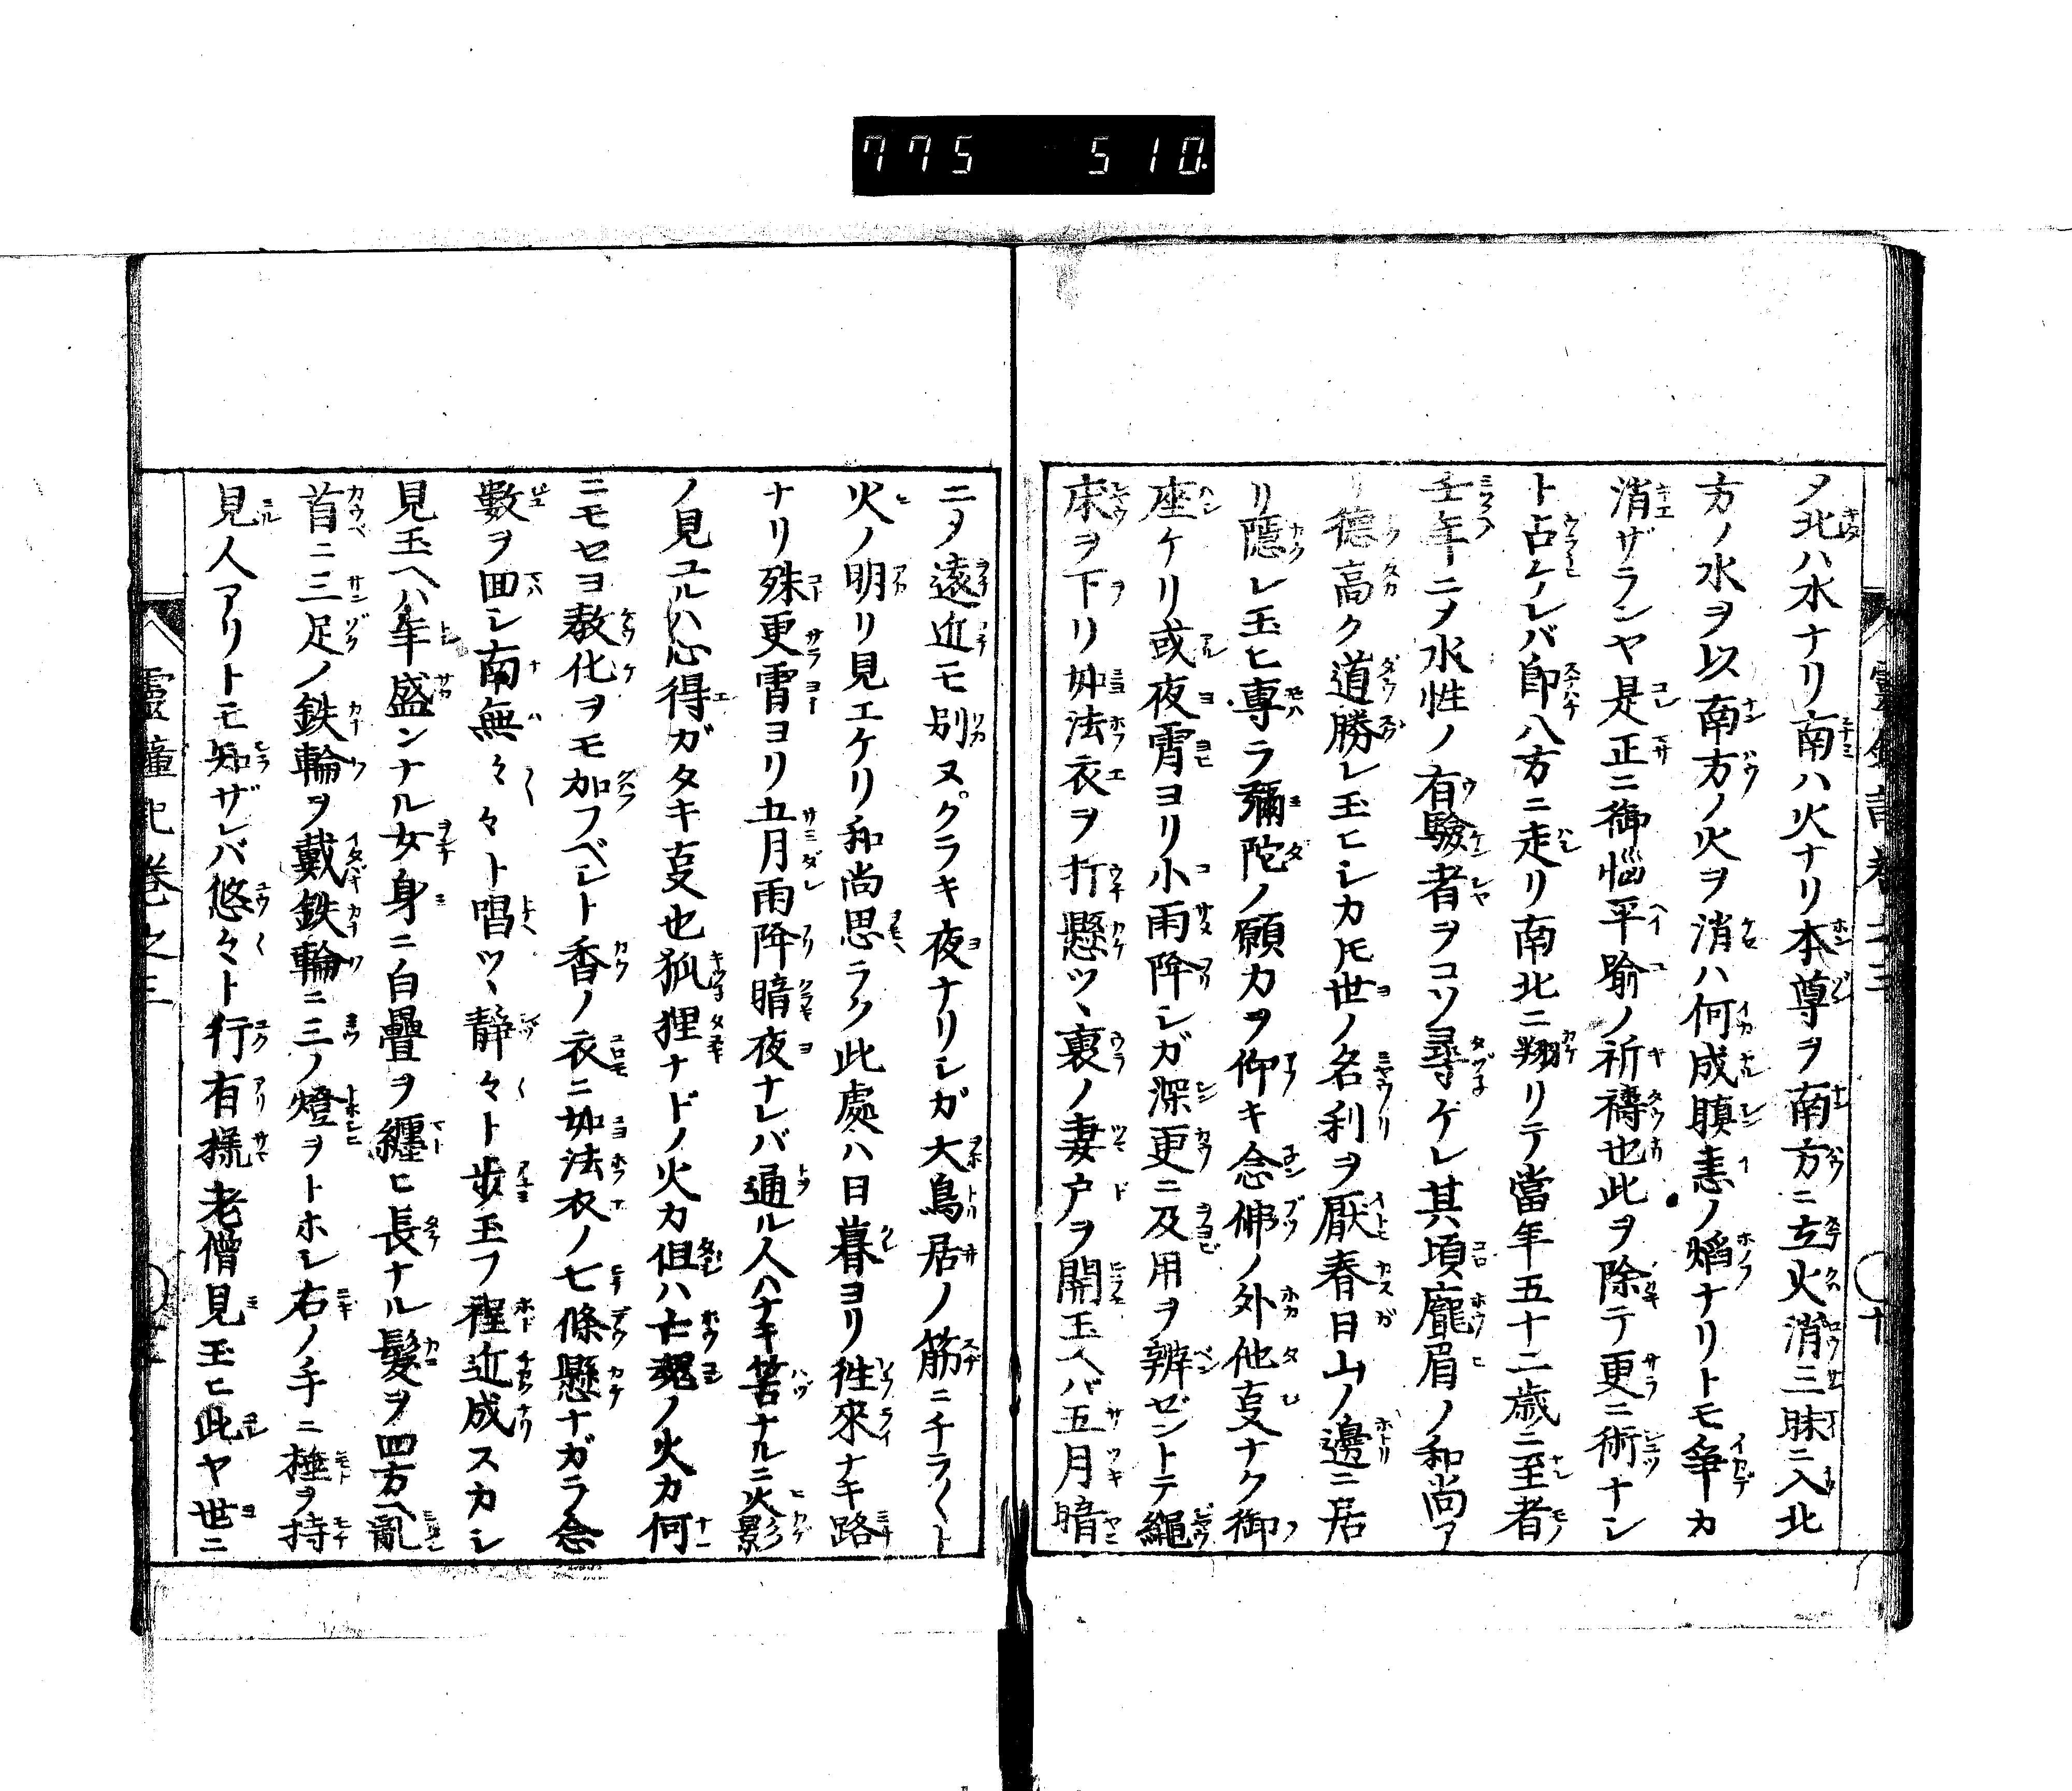 775 510.
〆北ハ水ナリ南ハ火ナリ本尊ヲ南方ニ立火消三昧ニ入北
方ノ水ヲ以南方ノ火ヲ消ハ何成瞋恚ノ焔ナリトモ争カ
消ザランヤ是正ニ御悩平踰ノ祈禱也此ヲ除テ更ニ術ナシ
ト占ケレバ即八方ニ走リ南北ニ翔リテ當年五十二歳ニ至者
壬年ニ〆水性ノ有驗者ヲコソ尋ケレ其頃龐眉ノ和尚ア
リ德高ク道勝レ玉ヒシカ𪜈世ノ名利ヲ厭春日山ノ邊ニ居
リ隱レ玉ヒ専ラ彌陀ノ願力ヲ仰キ念佛ノ外他叓ナク御
座ケリ或夜霄ヨリ小雨降シガ深更ニ及用ヲ辨ゼントテ繩
床ヲ下リ如法衣ヲ打懸ツヽ裏ノ妻戸ヲ開玉ヘバ五月暗
ニ〆遠近モ別ヌクラキ夜ナリシガ大鳥居ノ筋ニチラ〱ト
火ノ明リ見エケリ和尚思ラク此處ハ日暮ヨリ徃來ナキ路
ナリ殊更霄ヨリ五月雨降暗夜ナレバ通ル人ハナキ筈ナルニ火影
ノ見ユルハ心得ガタキ叓也狐狸ナドノ火カ但ハ亡魂ノ火カ何
ニモセヨ教化ヲモ加フベシト香ノ衣ニ如法衣ノ七條懸ナガラ念
數ヲ囬シ南無々々ト唱ツヽ静々ト歩玉フ程近成スカシ
見玉ヘハ年盛ンナル女身ニ白疊ヲ纏ヒ長ナル髮ヲ四方ヘ亂
首ニ三足ノ鉄輪ヲ戴鉄輪ニ三ノ燈ヲトホシ右ノ手ニ捶ヲ持
見人アリトモ知ザレバ悠々ト行有様老僧見玉ヒ此ヤ世ニ